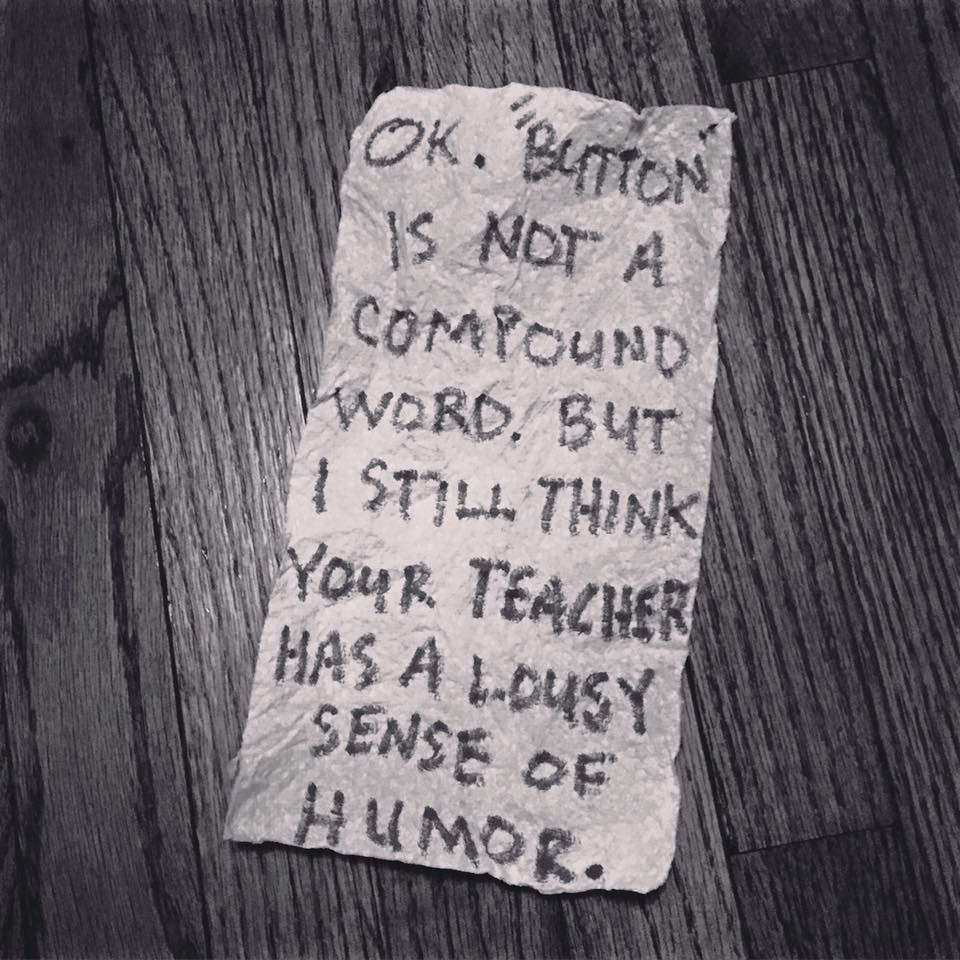 OK. "BUTTON"
IS NOT A
COMPOUND
WORD. BUT
I STILL THINK
YOUR TEACHER
HAS A LOUSY
SENSE OF
HUMOR.